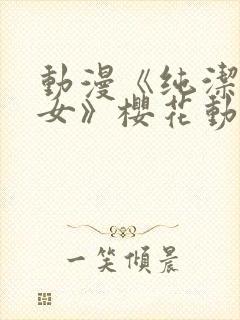 動漫《纯潔
女》櫻花動
一笑傾晨